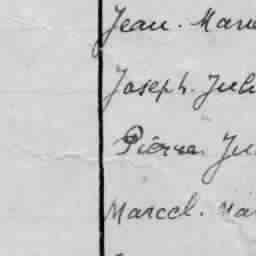 Jean. Marie
Joseph. Juli
Pierre. Ju
Marcel. Mar